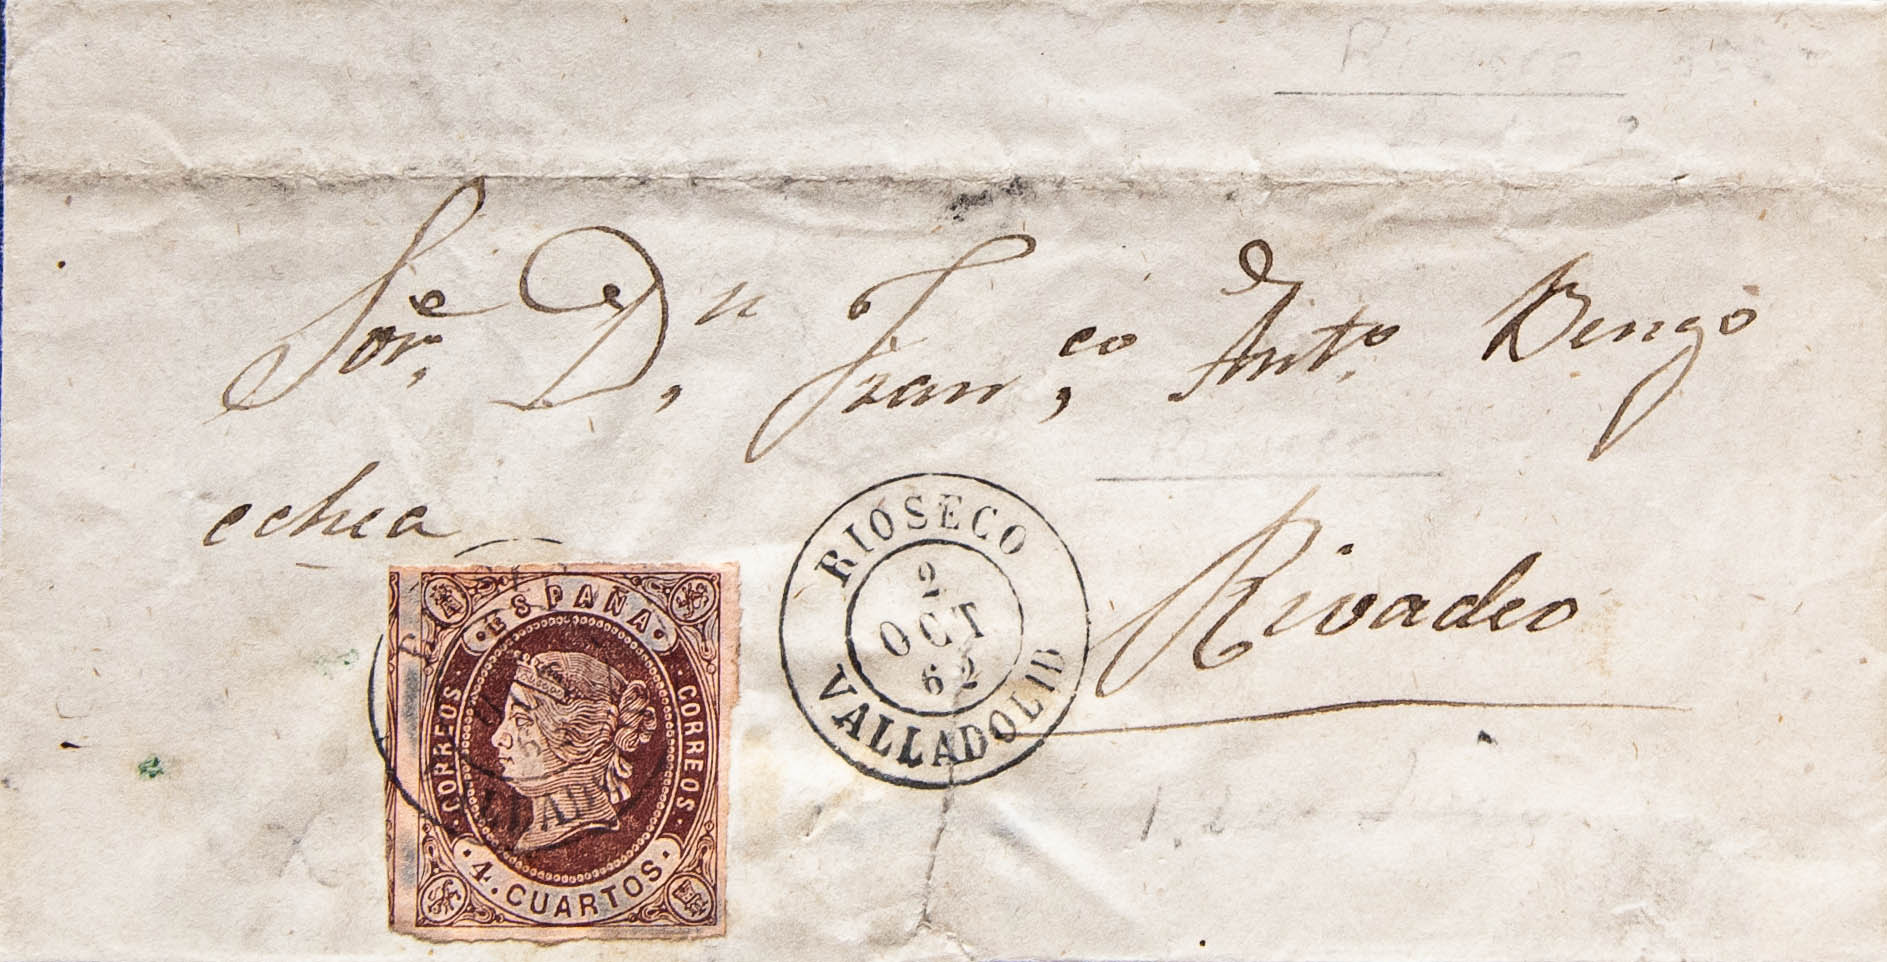 Sor.e D.n Fran,co Ant.o Bengo
echea
RIOSECO
2
OCT
62
VALLADOLID
Rivadeo
ESPAÑA
CORREOS
CORREOS
4. CUARTOS